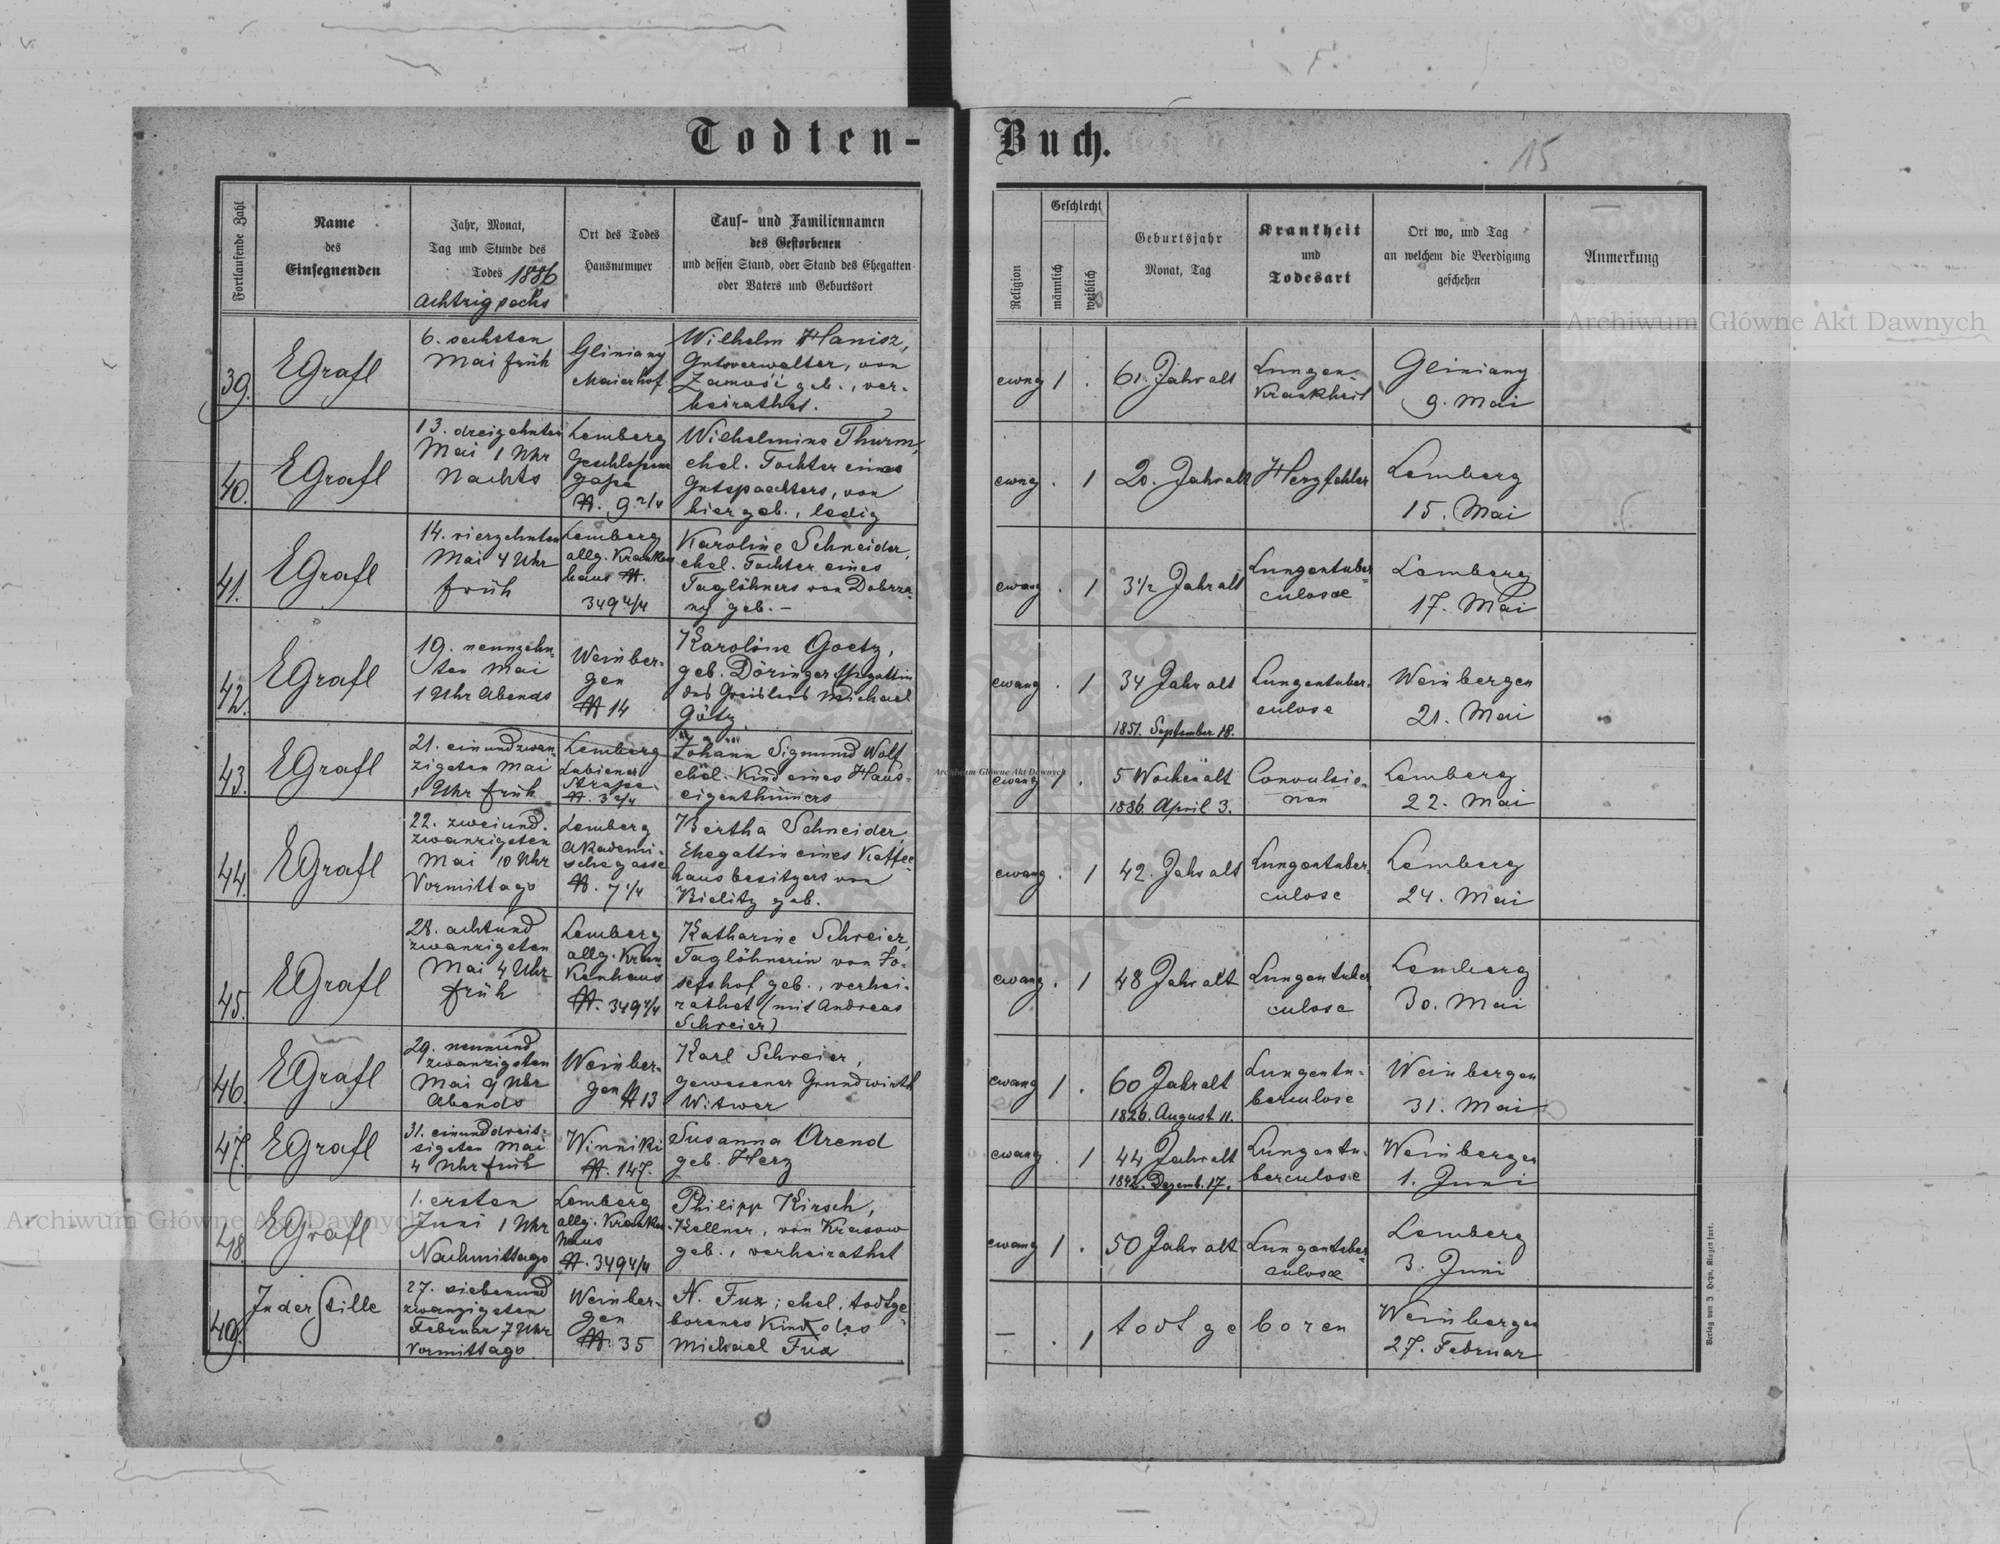 Todten-Buch.
15
Fortlaufende Zahl
Name
des
Einsegnenden
Jahr, Monat,
Tag und Stunde des
Todes 1886
achtzig sechs
Ort des Todes
Hausnummer
Tauf- und Familiennamen
des Gestorbenen
und dessen Stand, oder Stand des Ehegatten
oder Vaters und Geburtsort
Religion
Geschlecht
männlich
weiblich
Geburtsjahr
Monat, Tag
Krankheit
und
Todesart
Ort wo, und Tag
an welchem die Beerdigung
geschehen
Anmerkung
39.
EGrafl
6. sechsten
Mai früh
Gliniany
Maierhof
Wilhelm Hanisz,
Gutsverwalter, von
Zamość geb., ver-
heirathet.
evang
1
.
61. Jahr alt
Lungen-
Krankheit
Gliniany
9. Mai
40.
EGrafl
13. dreizehnten
Mai 1 Uhr
Nachts
Lemberg
gasse
N. 9 2/4
Wilhelmine Thurm,
ehel. Tochter eines
Gutspaechters, von
hier geb., ledig
evang
.
1
20. Jahr alt
Herzfehler
Lemberg
15. Mai
41.
EGrafl
14. vierzehnten
Mai 4 Uhr
früh
Lemberg
allg. Kranken
haus N.
349 4/4
Karoline Schneider,
ehel. Tochter eines
Taglöhners von Dobrza-
ny geb. –
evang
.
1
3 1/2 Jahr alt
Lungentuber=
culose
Lemberg
17. Mai
42.
EGrafl
19. neunzehn-
ten Mai
1 Uhr Abends
Weinber-
gen
N 14
Karoline Goetz,
geb. Döringer Ehegattin
des Greislers Michael
Götz.
evang
.
1
34 Jahr alt
1851. September 18.
Lungentuber-
culose
Weinbergen
21. Mai
43.
EGrafl
21. einundzwan-
zigsten Mai
1 Uhr früh
Lemberg
Lubiener
Strasse
N. 3 2/4
Johann Sigmund Wolf
ehel. Kind eines Haus-
eigenthümers
evang
1
.
5 Wochen alt
1886. April 3.
Convulsio-
nen
Lemberg
22. Mai
44.
EGrafl
22. zweiund-
zwanzigsten
Mai 10 Uhr
Vormittags
Lemberg
Akademi-
sche gasse
N. 7 1/4
Bertha Schneider,
Ehegattin eines Kaffee
hausbesitzers von
Bielitz geb.
evang
.
1
42. Jahr alt
Lungentuber-
culose
Lemberg
24. Mai
45.
EGrafl
28. achtund
zwanzigsten
Mai 4 Uhr
früh
Lemberg
allg. Kran-
kenhaus
N. 349 4/4
Katharine Schreier,
Taglöhnerin von Jo-
sefshof geb., verhei-
rathet (mit Andreas
Schreier)
evang
.
1
48 Jahr alt
Lungentuber
culose
Lemberg
30. Mai
46.
EGrafl
29. neunund
zwanzigsten
Mai 9 Uhr
Abends
Weinber-
gen N 13
Karl Schreier,
gewesener Grundwirth
Witwer
evang
1
.
60 Jahr alt
1826. August 11.
Lungentu-
berculose
Weinbergen
31. Mai
47.
EGrafl
31. einunddreis-
sigsten Mai
4 Uhr früh
Winniki
N. 147.
Susanna Arend
geb. Herz
evang
.
1
44 Jahr alt
1842. Dezemb. 17.
Lungentu-
berculose
Weinbergen
1. Juni
48.
EGrafl
1. ersten
Juni 1 Uhr
Nachmittags
Lemberg
allg. Kranken-
haus
N. 349 4/4
Philipp Kirsch,
Kellner, von Krasow
geb., verheirathet
evang
1
.
50 Jahr alt
Lungentuber=
culose
Lemberg
3. Juni
49.
In der Stille
27. siebenund
zwanzigsten
Februar 7 Uhr
Vormittags
Weinber-
gen
N. 35
N. Fux; ehel. todtge-
borenes Kind des
Michael Fux
–
.
1
todt geboren
Weinbergen
27. Februar
Archiwum Główne Akt Dawnych
Archiwum Główne Akt Dawnych
Archiwum Główne Akt Dawnych